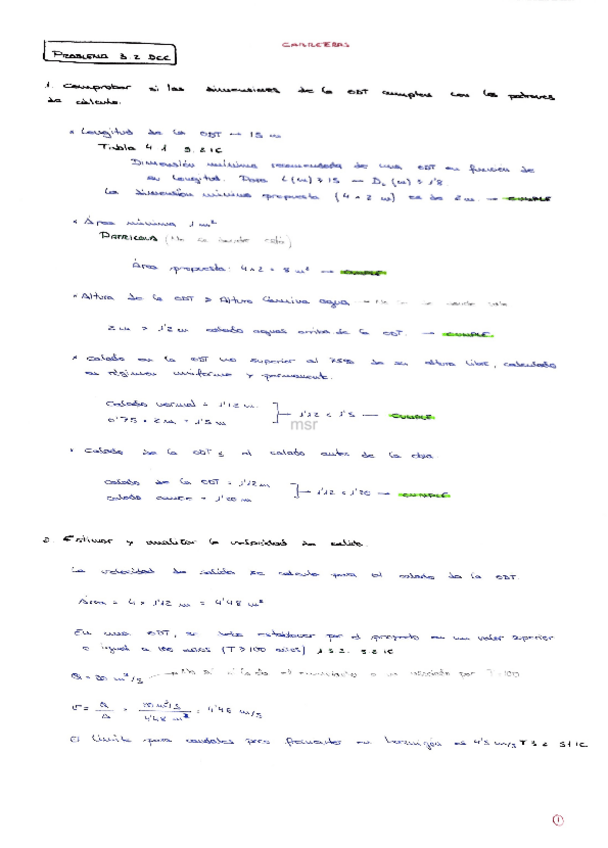 CARRETERAS
PROBLEMA 3 2 DCC
1. Comprobar si las dimensiones de la ODT cumplen con los patrones
de cálculo.
* Longitud de la ODT → 15 m
Tabla 4 1 5.2 IC
Dimensión mínima recomendada de una ODT en función de
su longitud. Para L(m) ≥ 15 → (m) ≥ 1'8
La dimensión mínima propuesta (4 × 2 m) es de 2 m. → CUMPLE
* Área mínima 1 m²
PATRICOVA
Área propuesta: 4×2 = 8 m² → CUMPLE
* Altura de la ODT > Altura lámina agua
2 m > 1'2 m calado aguas arriba de la ODT. → CUMPLE
* Calado en la ODT no superior al 75% de su altura libre, calculado
en régimen uniforme y permanente.
Calado normal = 1'12 m.
0'75 × 2 m = 1'5 m
1'12 < 1'5 — CUMPLE
msr
* Calado de la ODT ≤ al calado antes de la obra
Calado de la ODT = 1'12 m
calado = 1'20 m
1'12 < 1'20 → CUMPLE
2. Estimar y analizar la velocidad de salida.
La velocidad de salida se calcula para el calado de la ODT.
Área = 4 × 1'12 m = 4'48 m²
En una ODT, se debe establecer por el proyecto en un valor superior
o igual a 100 años (T ≥ 100 años) 1 3 2. 5 2 IC
Q = 20 m³/s
v = Q/A = 20 m³/s / 4'48 m² = 4'46 m/s
El límite para caudales poco frecuentes en hormigón es 4'5 m/s T 3 2 51 IC
1